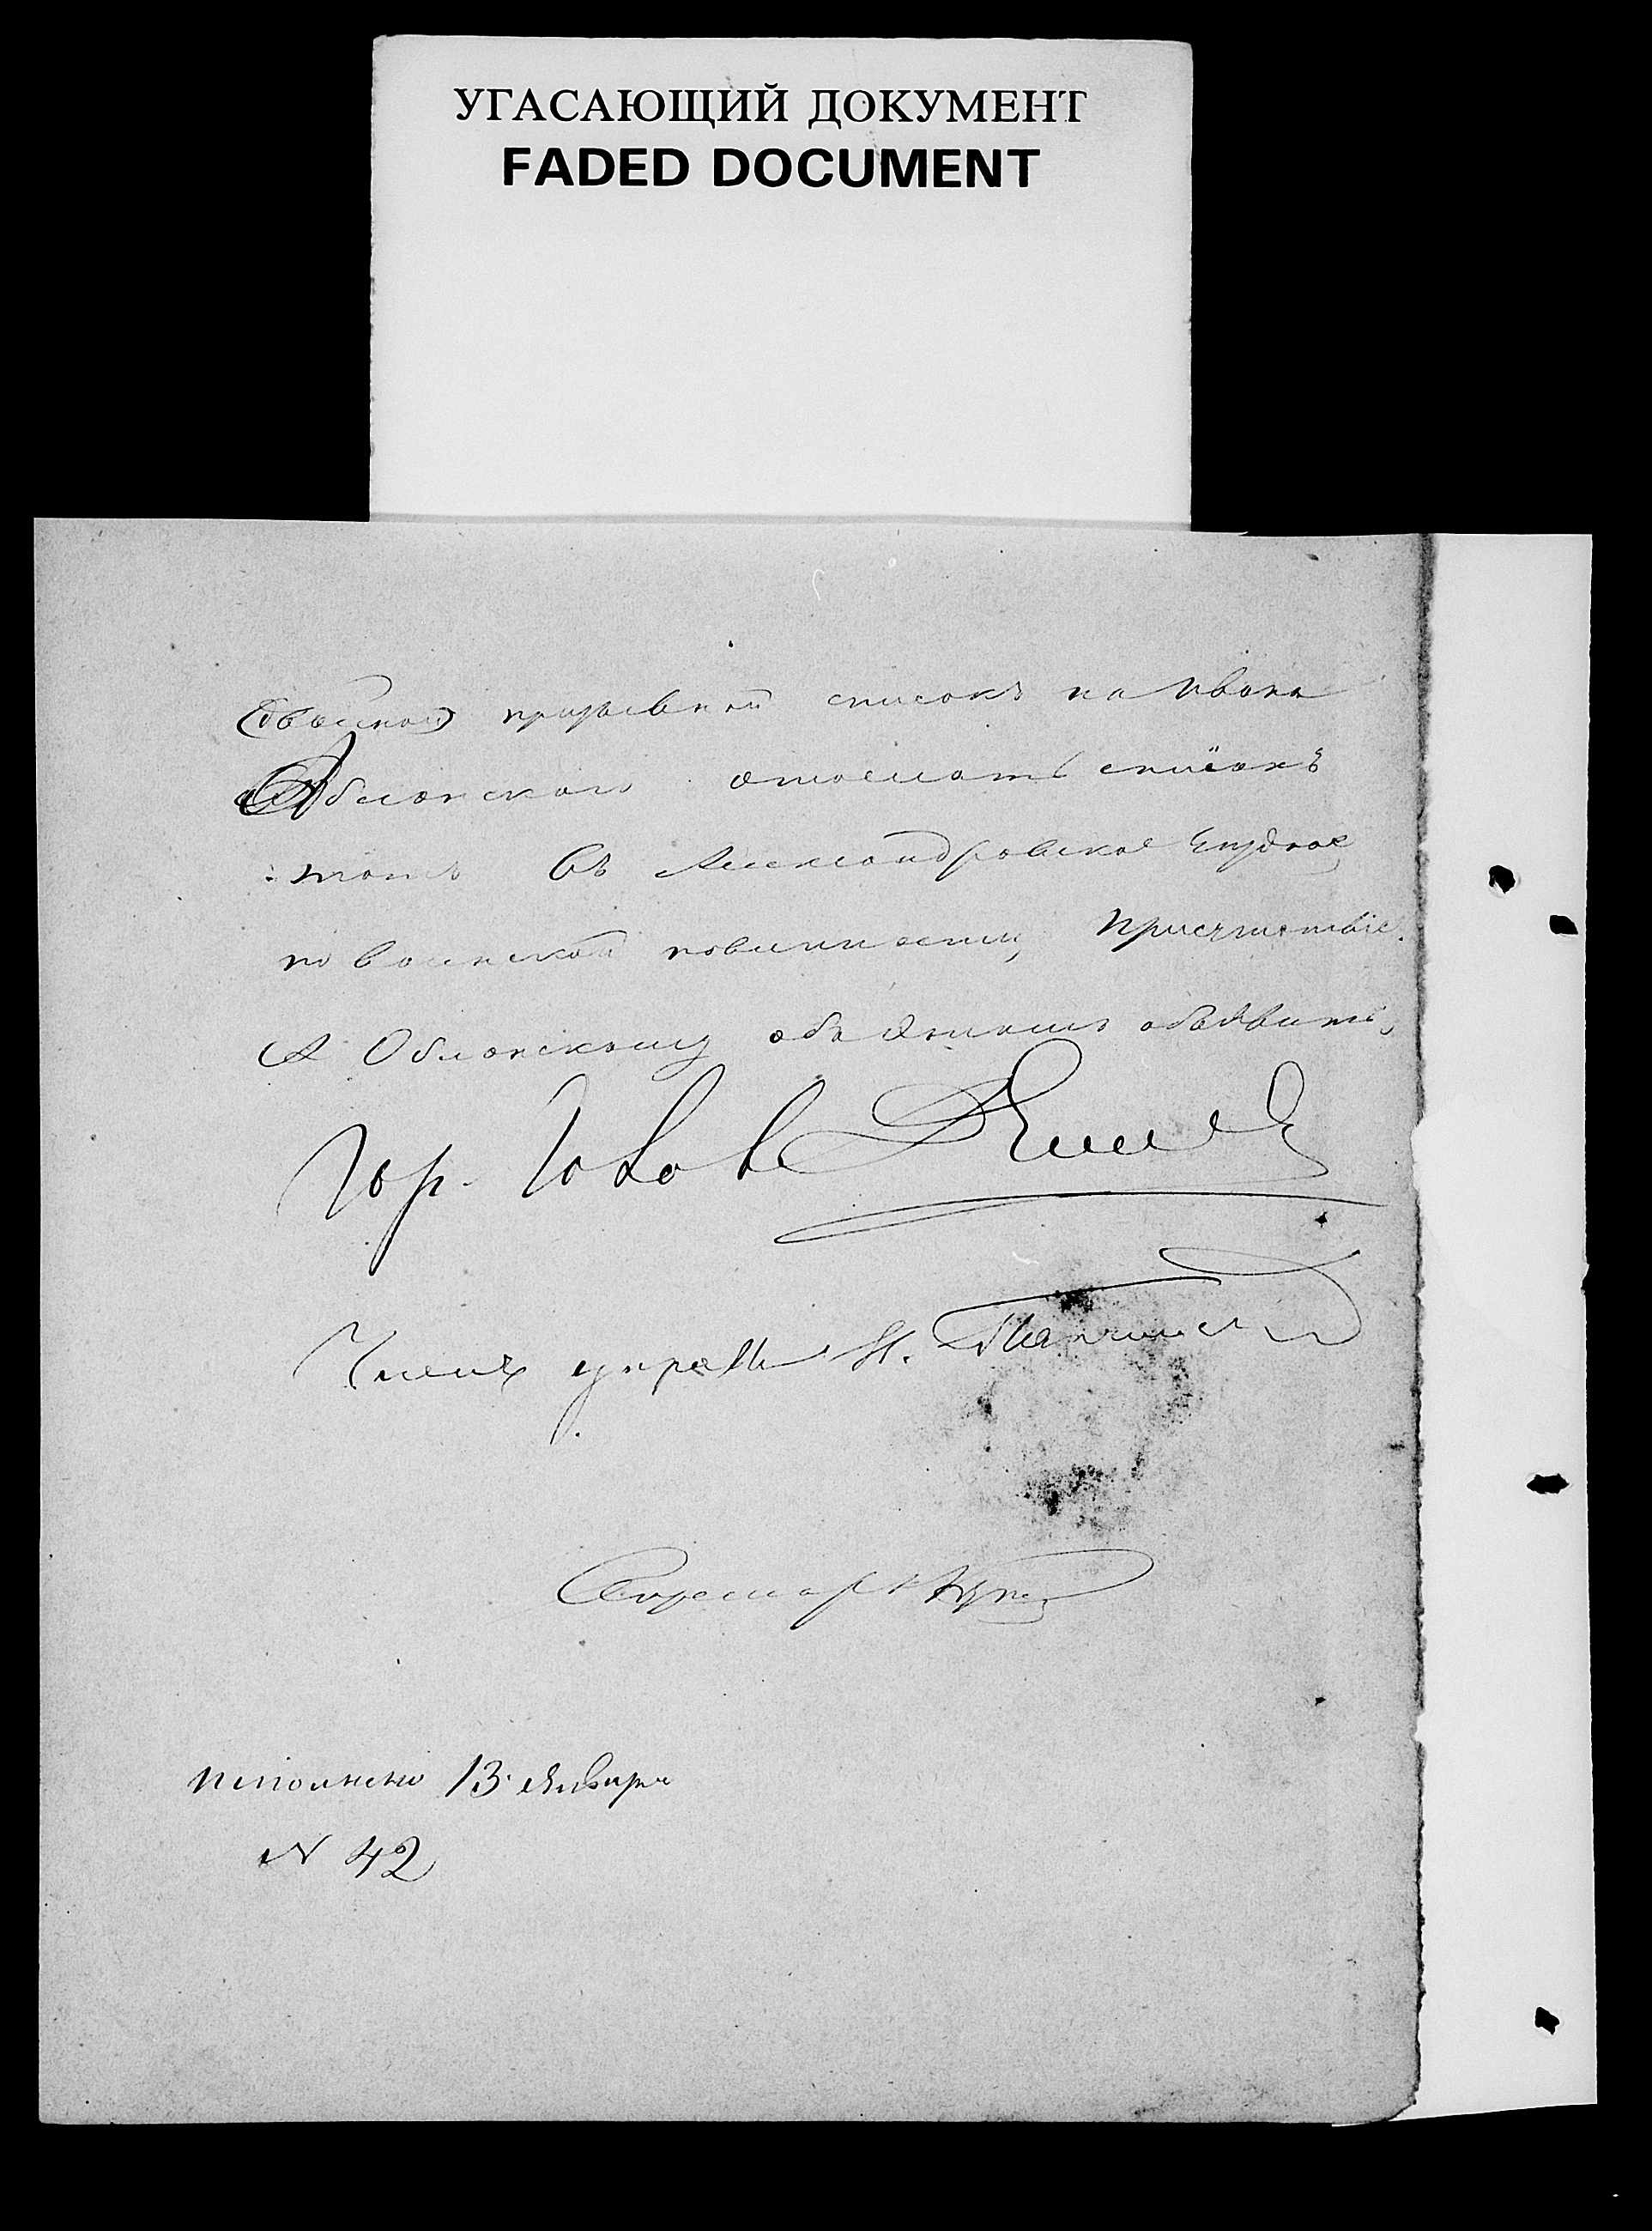 УГАСАЮЩИЙ ДОКУМЕНТ
FADED DOCUMENT
призывной списокъ на Ивана
Облонскаго отослать списокъ
тотъ въ Александровское Уездное
по воинской повинности, Присутствіе.
А Облонскому объ этомъ объявить,
Гор. Голова
Членъ управы Н.
Секретарь
Исполнено 13 Января
N 42